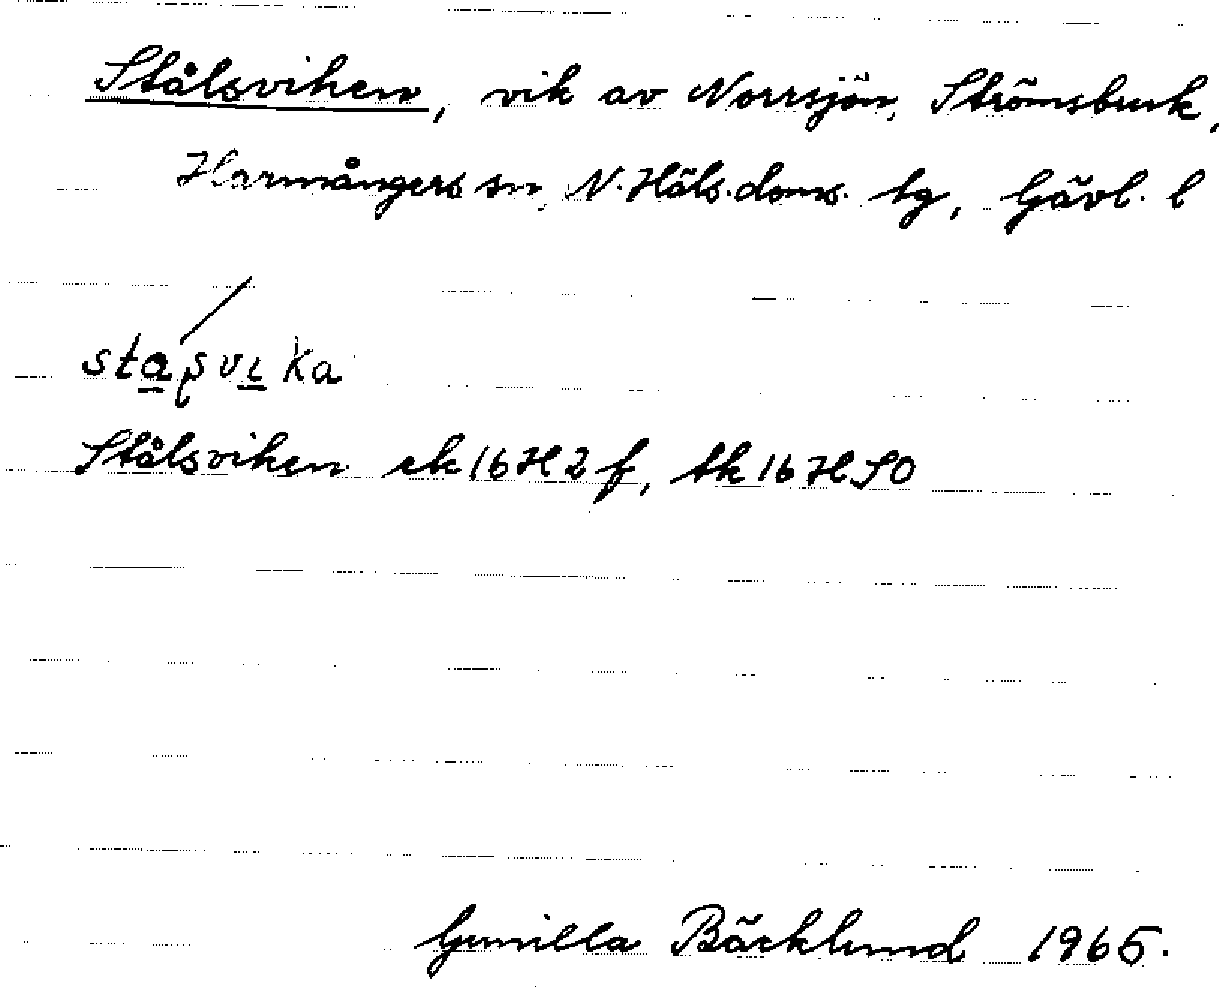 Stålsviken, vik av Norrsjön, Strömsbruk,
Harmångers sn, N. Häls. doms. tg, Gävl. l
Stålsviken ek 16 H 2 f, tk 16 H SO
Gunilla Bäcklund 1965.